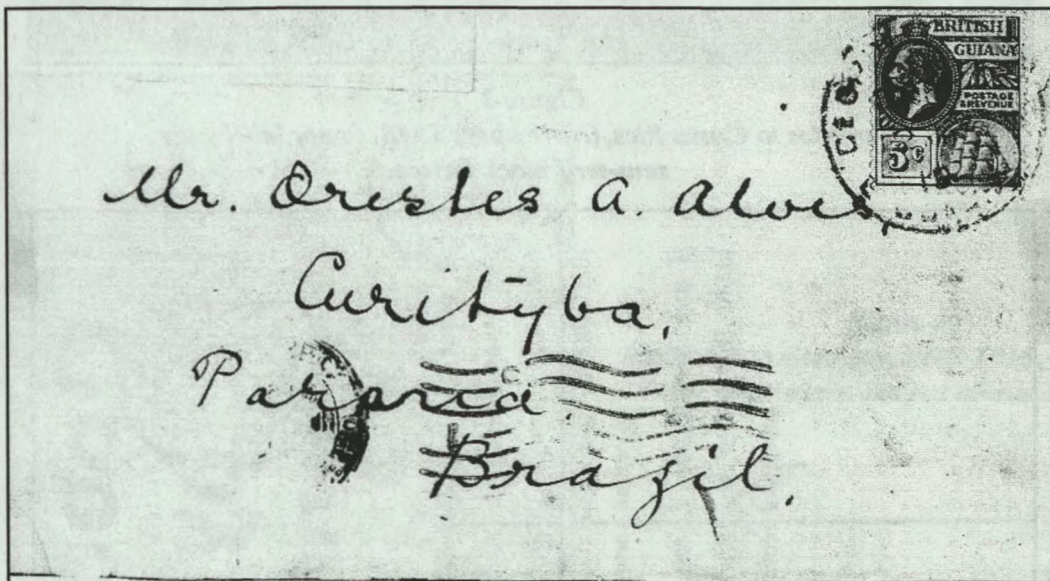 BRITISH
GUIANA
POSTAGE
& REVENUE
5c
Mr. Orestes A. Alves,
Curityba,
Paraná
Brazil.